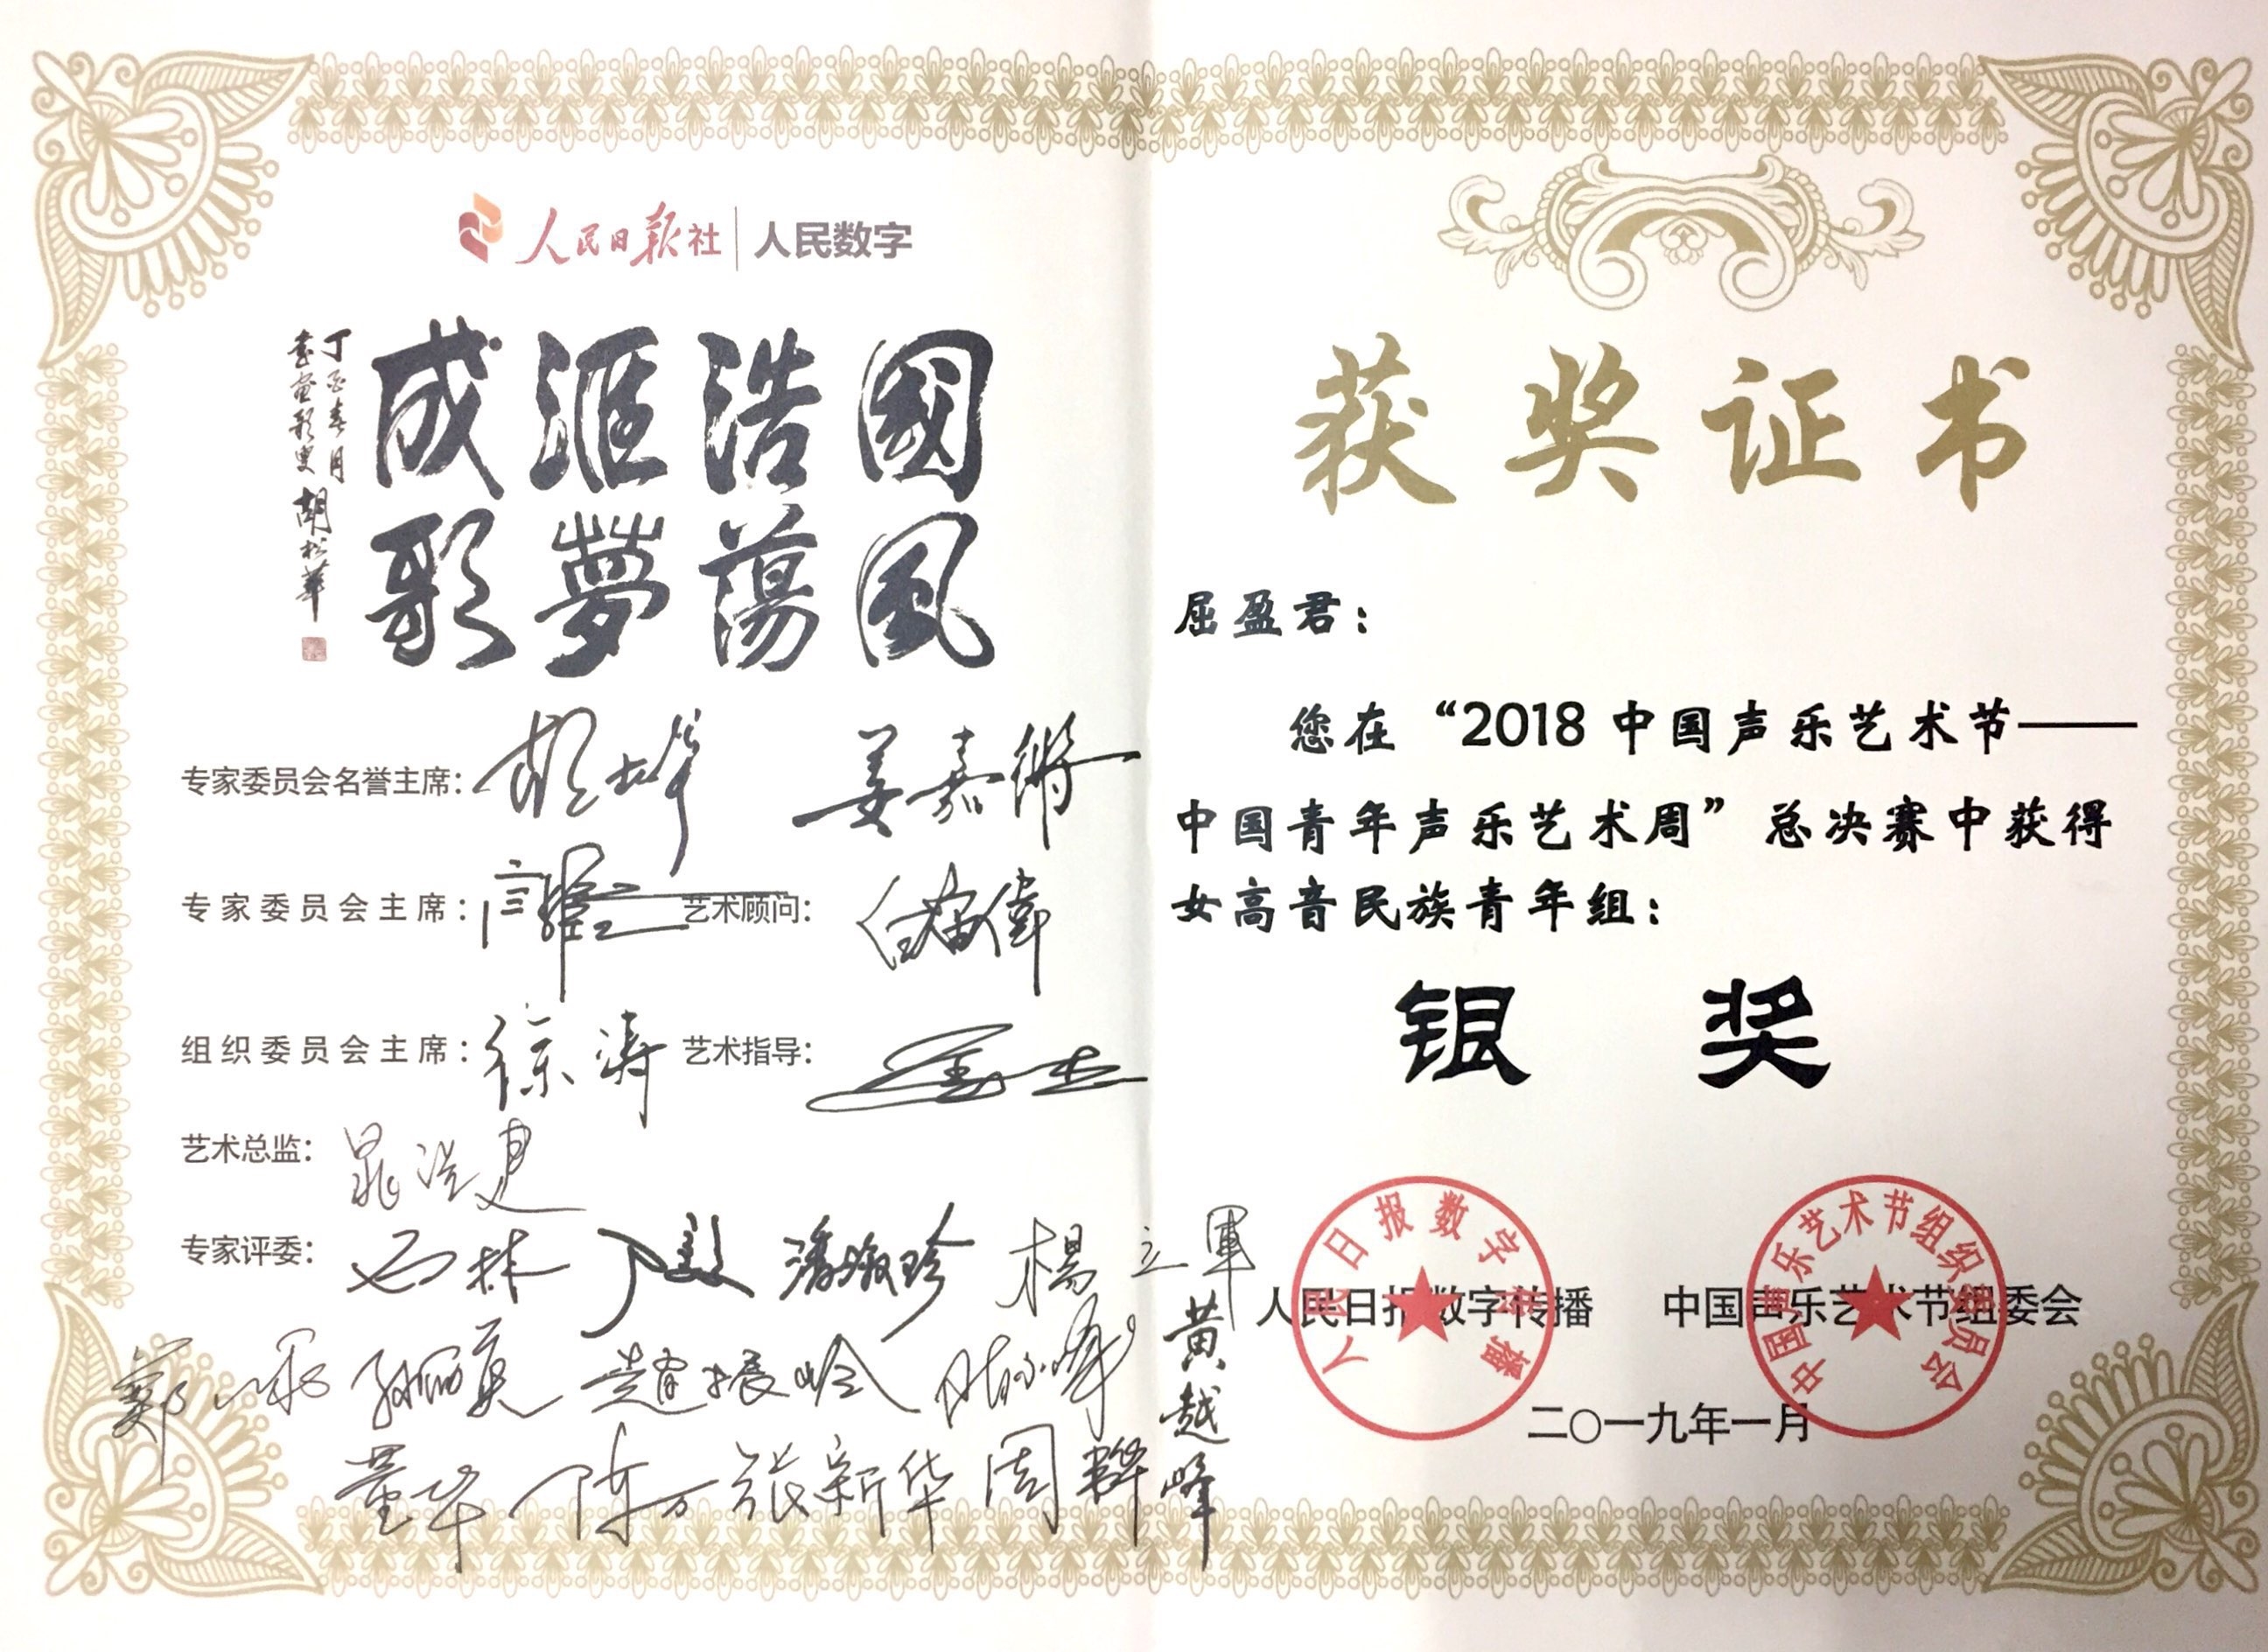 人民日报社 | 人民数字
國風
浩蕩
滙夢
成歌
丁酉春月
胡松華
专家委员会名誉主席：
姜嘉锵
专家委员会主席：
艺术顾问：
组织委员会主席：徐涛
艺术指导：
艺术总监：晁浩建
专家评委：
潘淑珍
楊立軍
孙丽英
趙振岭
黄越峰
董华
陈万
张新华
周群
获奖证书
屈盈君：
您在“2018中国声乐艺术节——
中国青年声乐艺术周”总决赛中获得
女高音民族青年组：
银奖
人民日报数字传播
中国声乐艺术节组委会
二〇一九年一月
人民日报数字传播
中国声乐艺术节组织委员会